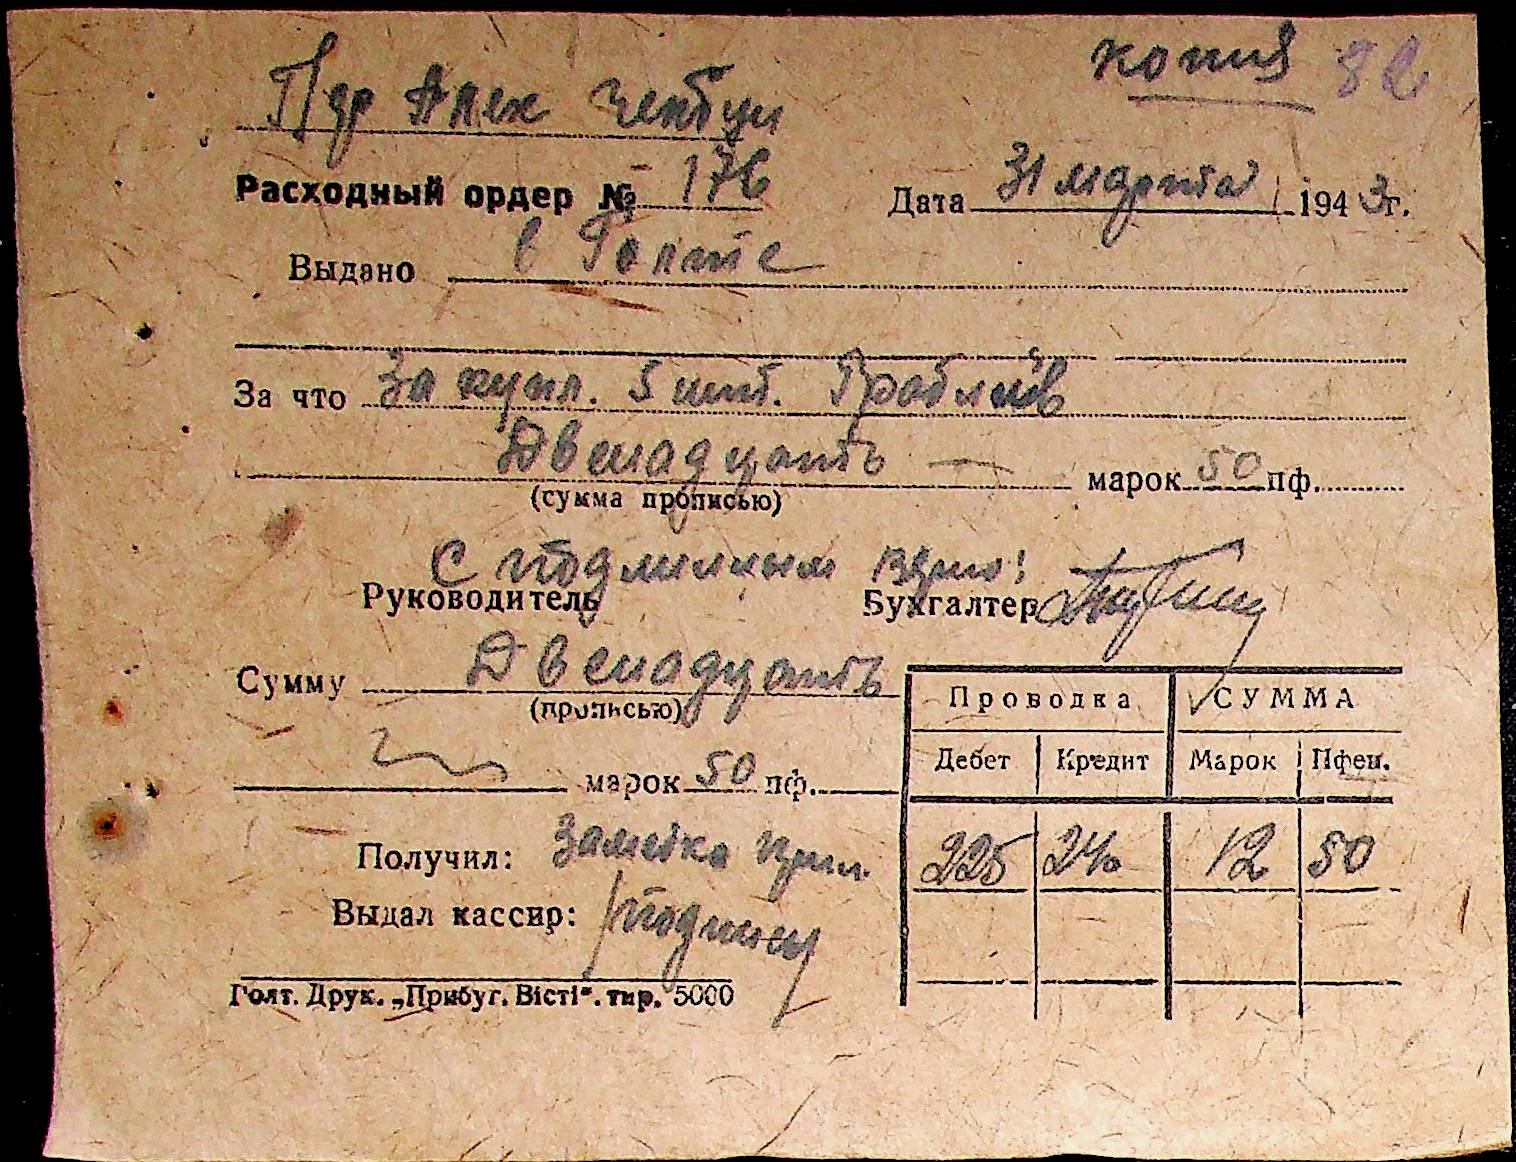 копия 82
Расходный ордер № 176 Дата 31 марта 1943 г.
Выдано в Голте
За что За купл. 5 шт. Граблив
Двенадцать — марок 50 пф.
(сумма прописью)
С подлинным верно!
Руководитель Бухгалтер
Сумму Двенадцать
(прописью)
марок 50 пф.
Проводка СУММА
Дебет Кредит Марок Пфен.
225 12 50
Получил:
Выдал кассир: /подпись/
Голт. Друк. „Прибуг. Вісті“. тир. 5000